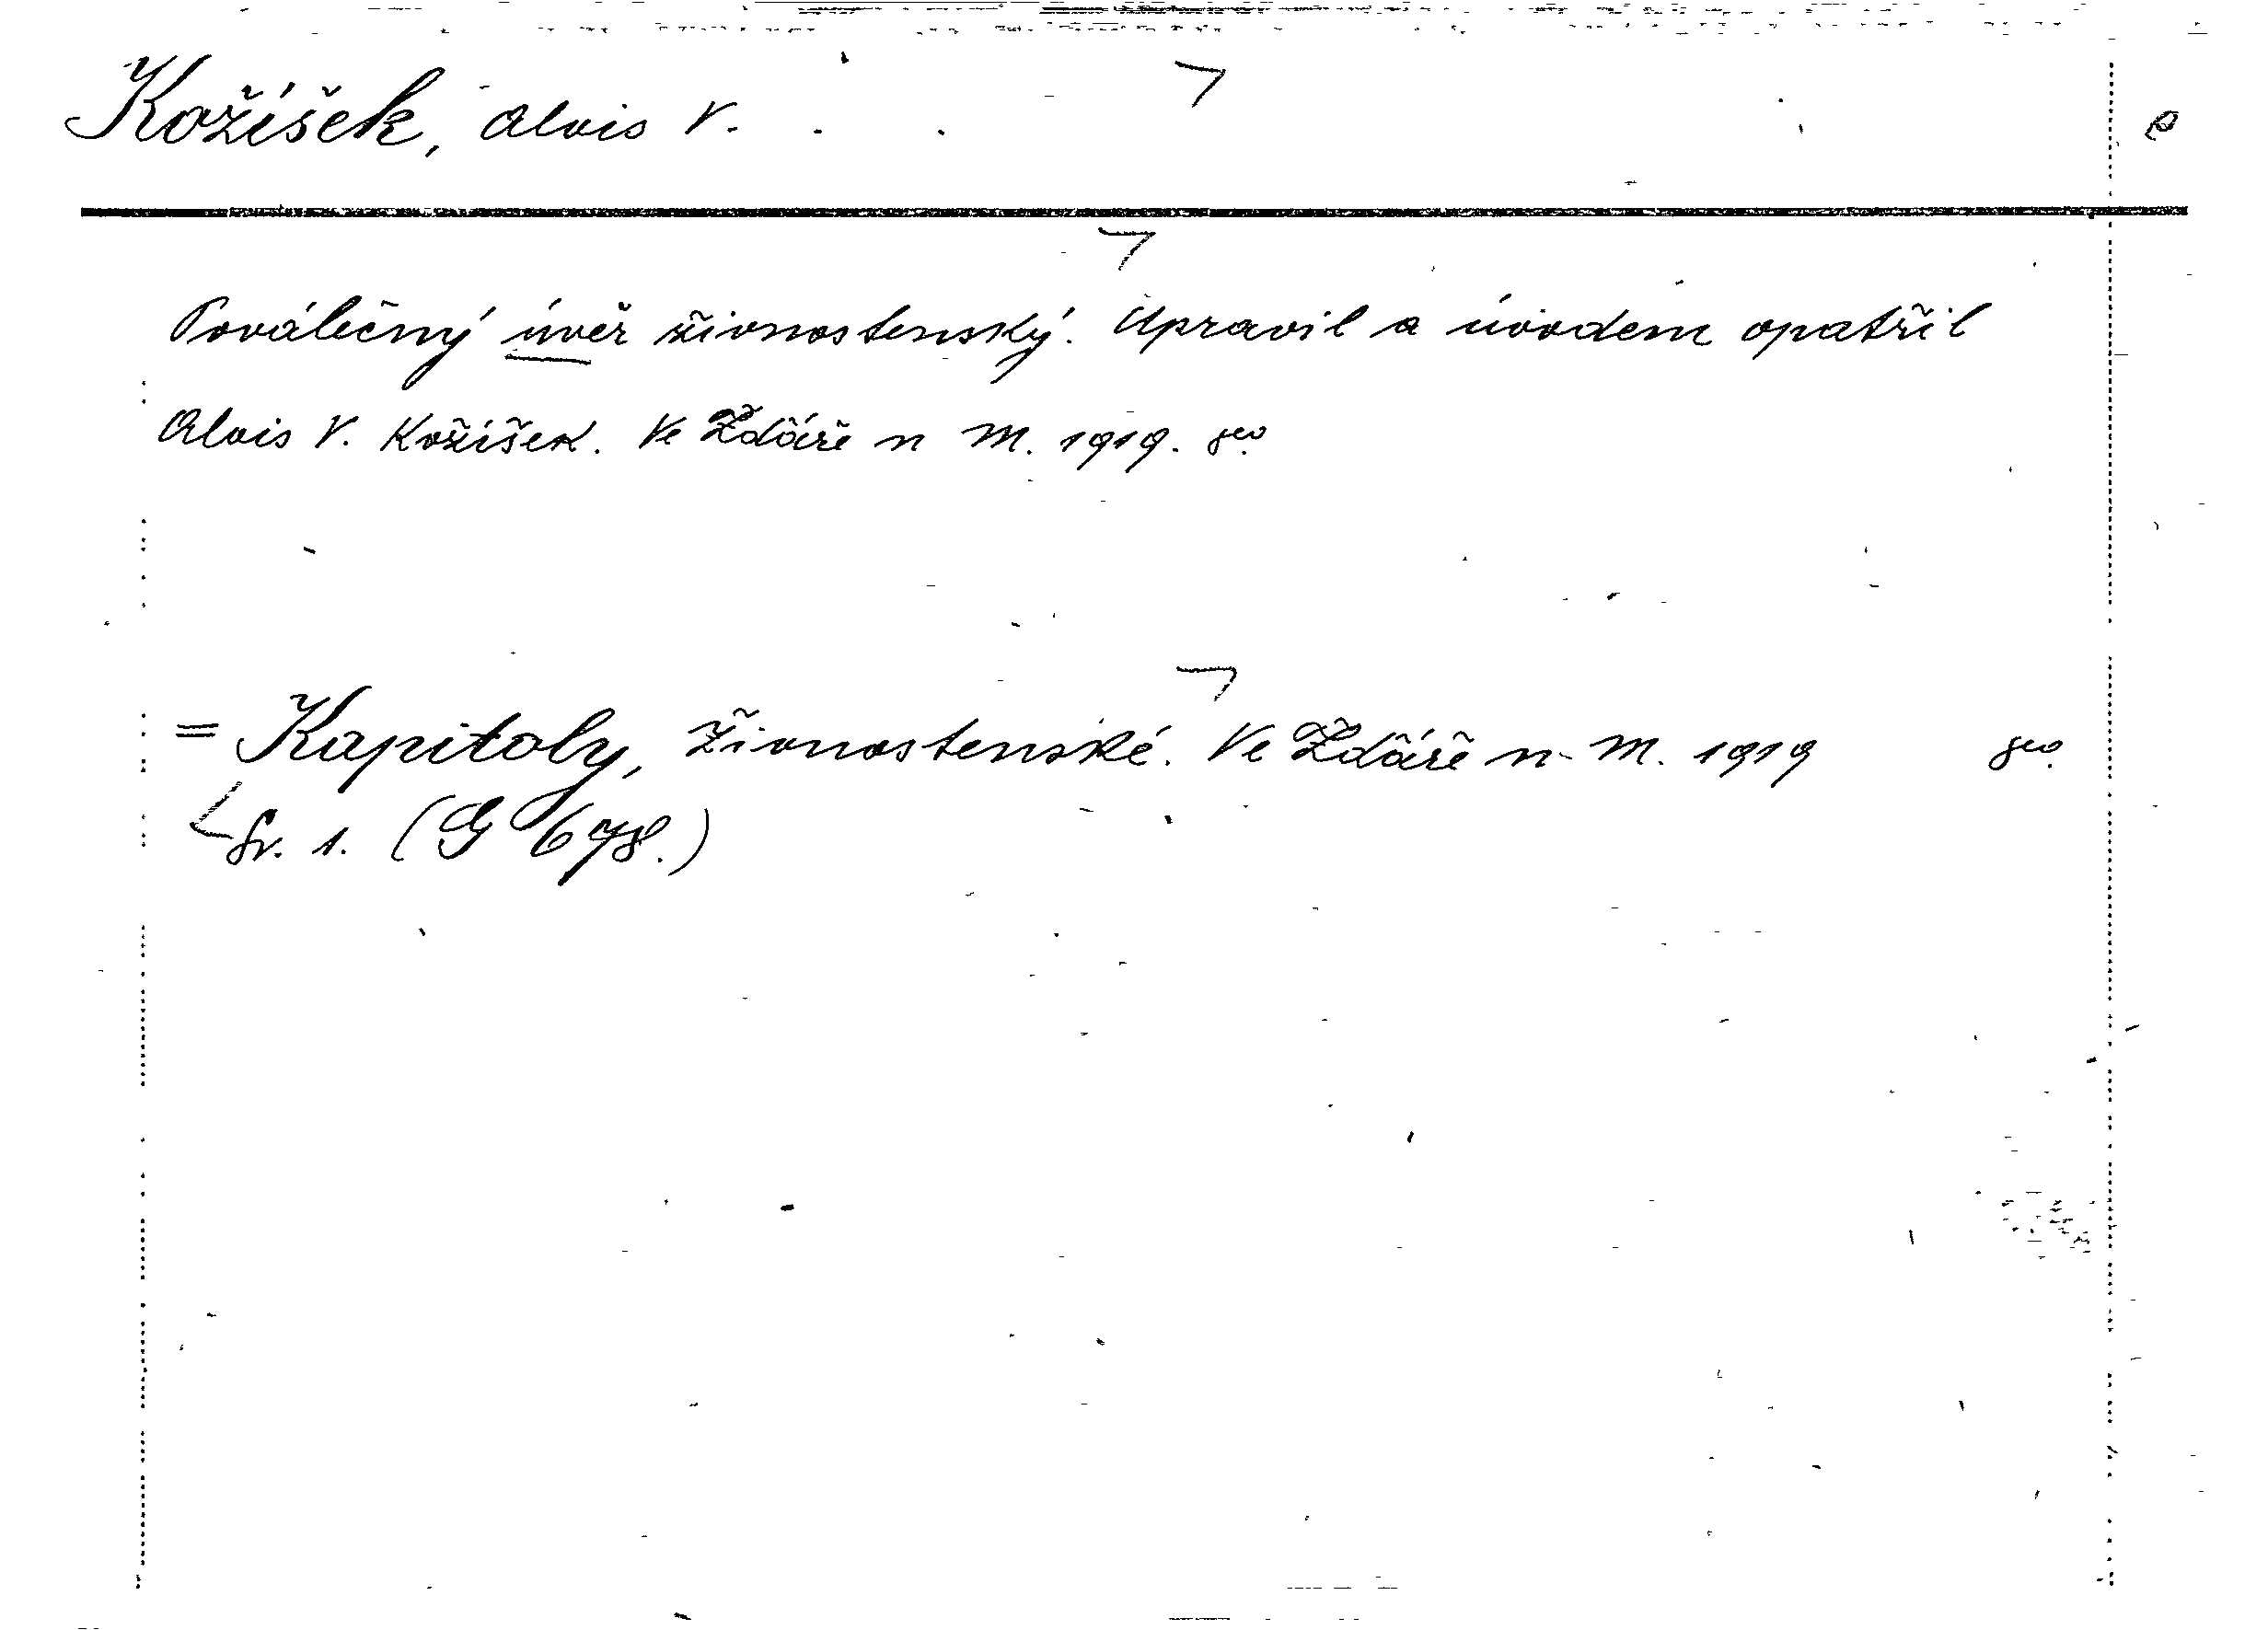 Kožíšek, Alois V.
Poválečný úvěr živnostenský. Upravil a úvodem opatřil
Alois V. Kožíšek. Ve Žďáře n M. 1919. 8°.
= Kapitoly, Živnostenské. Ve Žďáře n. M. 1919 8°.
Sv. 1. (G 678.)